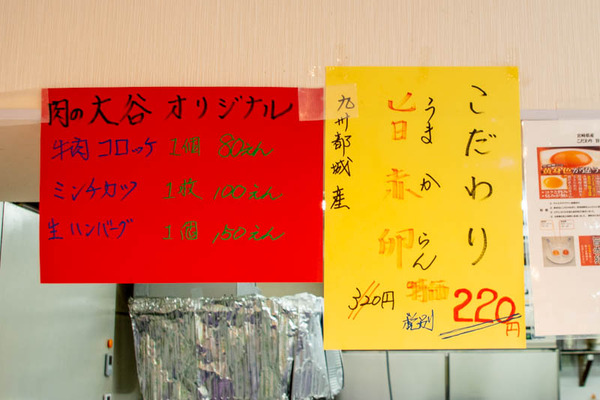 肉の大谷 オリジナル
牛肉 コロッケ 1個 80えん
ミンチカツ 1枚 100えん
生 ハンバーグ 1個 150えん
こだわり
うまか らん
旨赤卵
九州都城産
320円
特価
税別
220円
宮崎県産